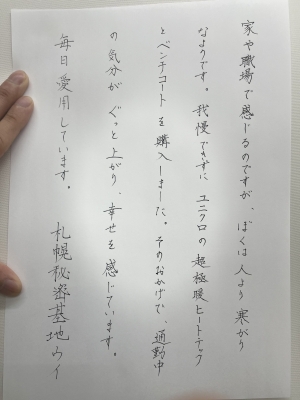 家や職場で感じるのですが、ぼくは人より寒がり
なようです。我慢できずにユニクロの超極暖ヒートテック
とベンチコートを購入しました。そのおかげで、通勤中
の気分がぐっと上がり、幸せを感じています。
毎日愛用しています。
札幌秘密基地ウイ